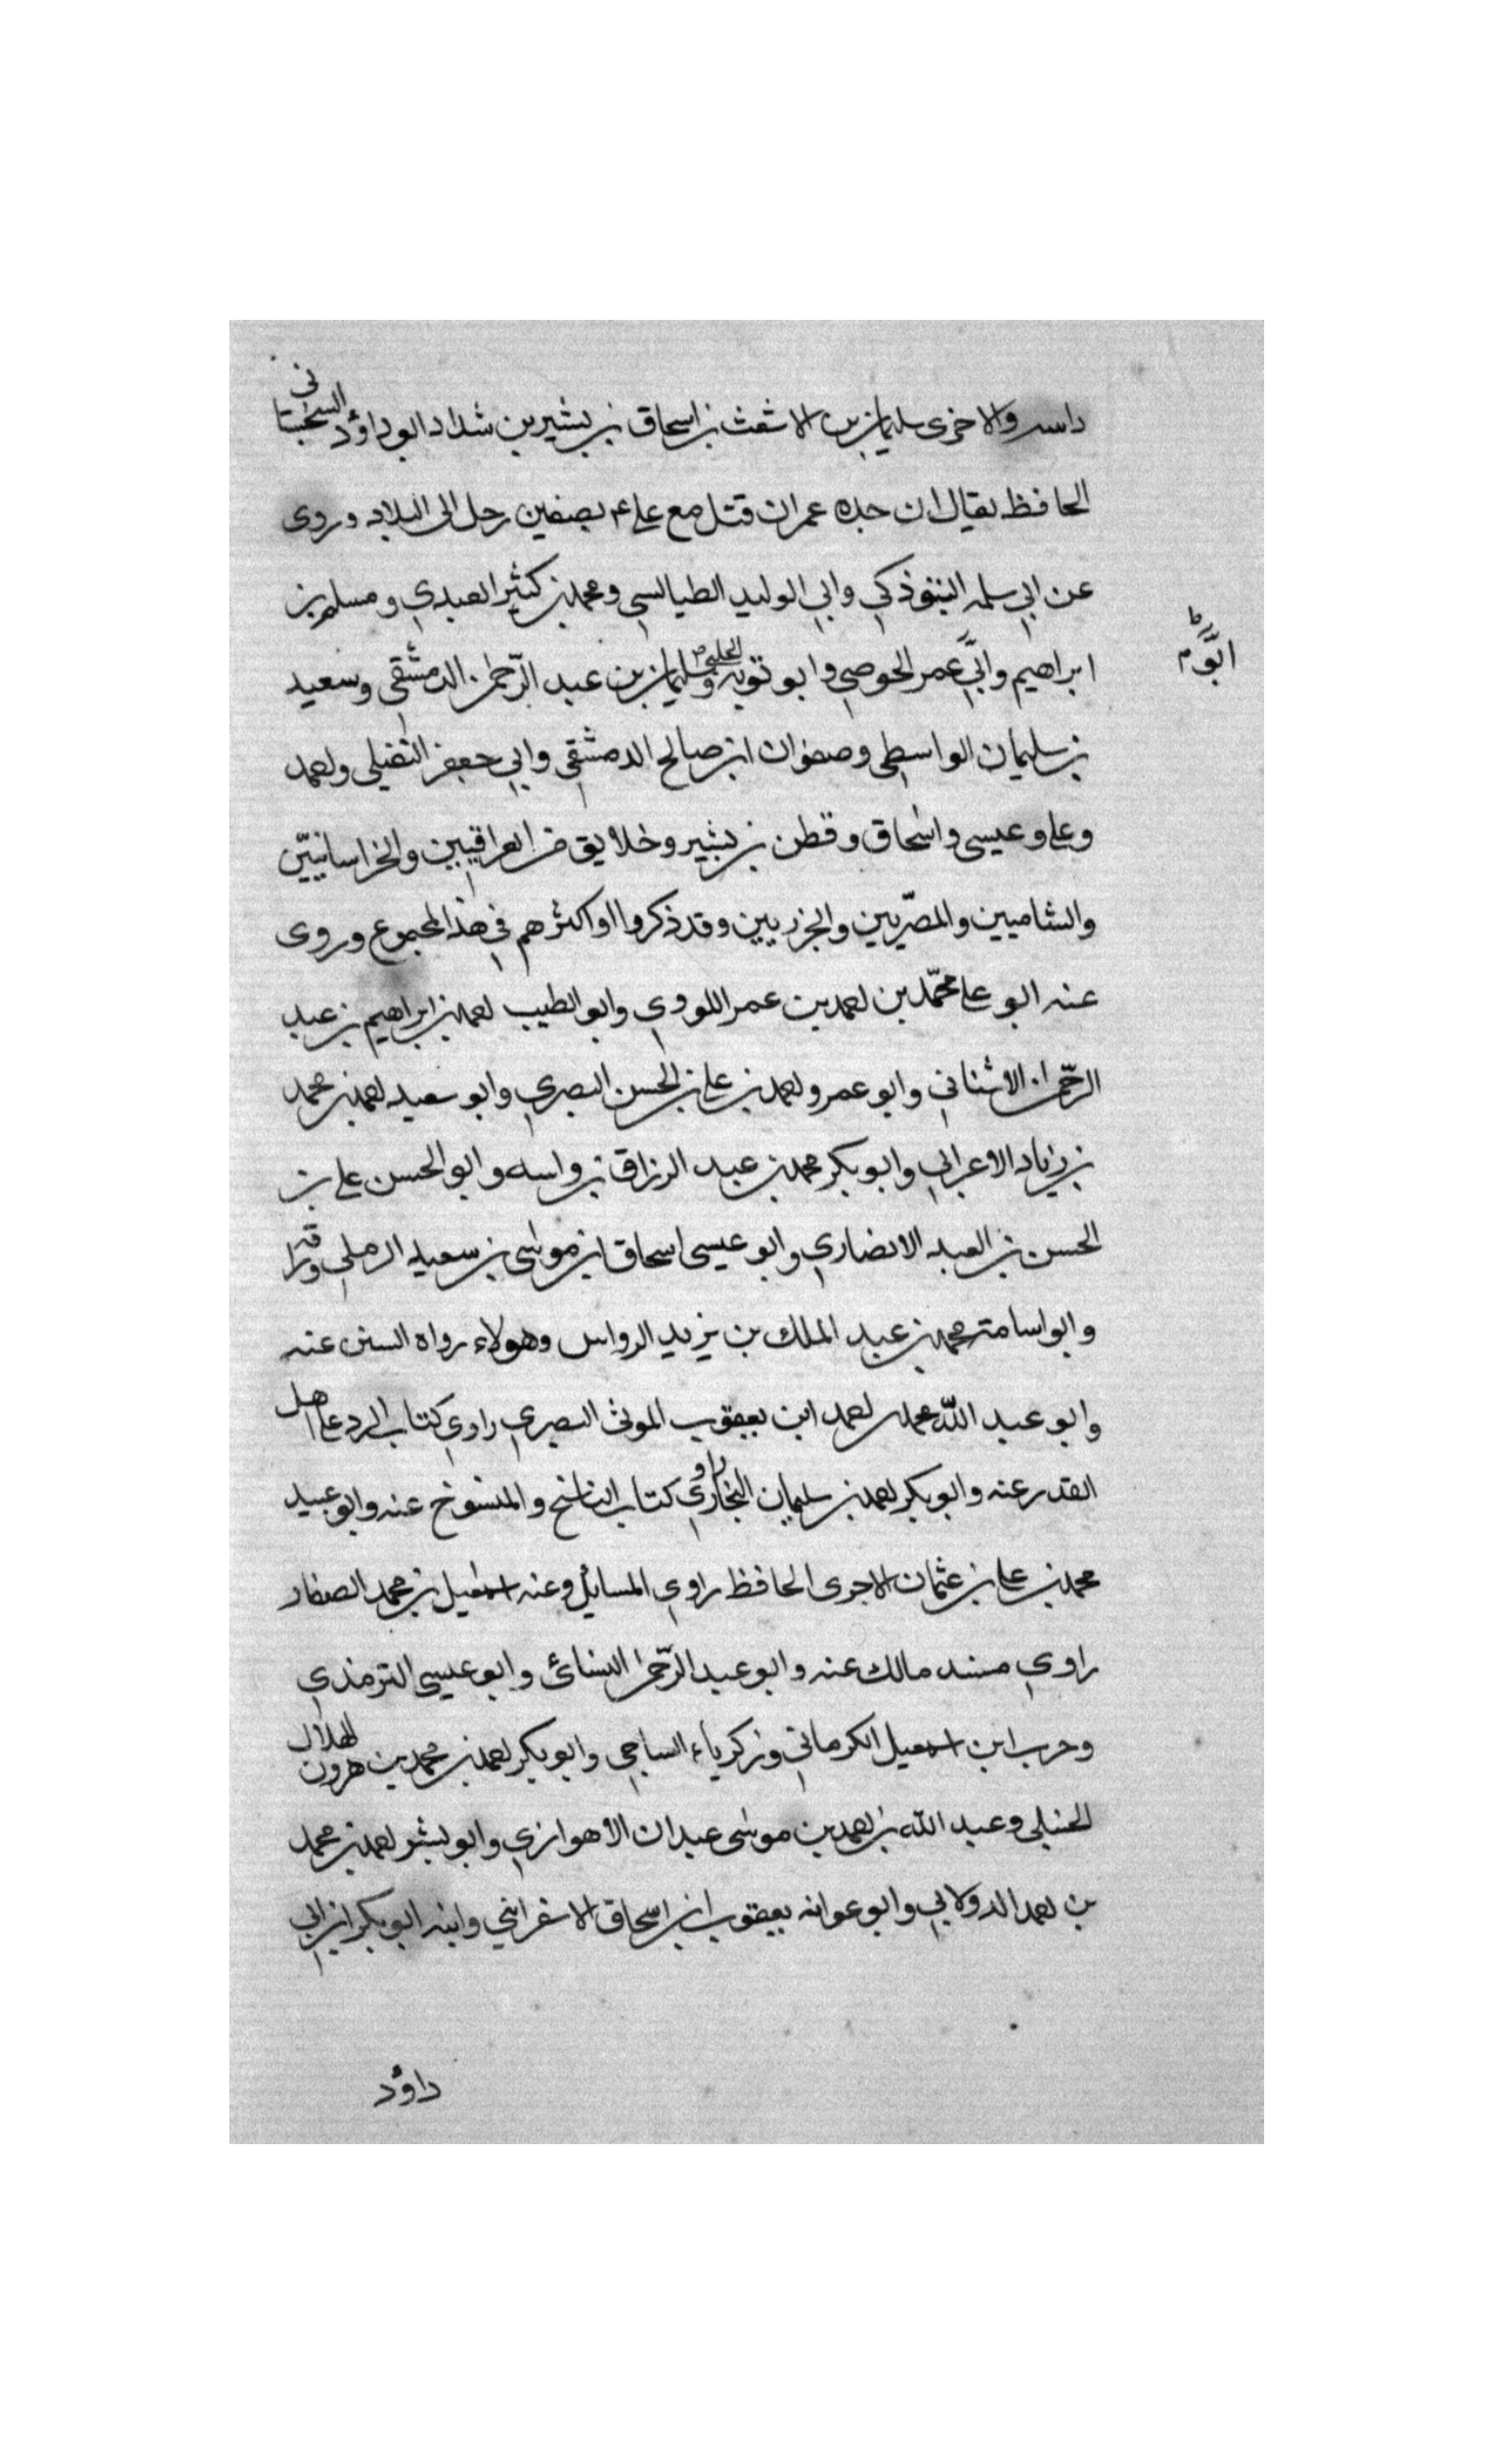 داسه والاخرى سليمان بن الاشعث بن اسحاق بن بشير بن شداد ابو داؤد السجستانى
الحافظ يقال ان جده عمران قتل مع على ع بصفين رحل الى البلاد وروى
عن ابي سلمه التبوذكي وابي الوليد الطيالسي ومحمد بن كثير العبدي ومسلم بن
ابراهيم وابي عمر الحوصي وابو توبه الحلبي وسليمان بن عبد الرحمن الدمشقي وسعيد
ابو
بن سليمان الواسطى وصفوان ابن صالح الدمشقي وابي جعفر النفيلى واحمد
وعلى وعيسى واسحاق وقطن بن بشير وخلايق من العراقيين والخراسانيين
والشاميين والمصريين والجزريين وقد ذكروا او اكثرهم في هذا المجموع وروى
عنه ابو على محمد بن احمد بن عمر اللووي وابو الطيب احمد بن ابراهيم بن عبد
الرحمن الاشناني وابو عمرو احمد بن على بن الحسن البصري وابو سعيد احمد بن محمد
بن زياد الاعرابي وابو بكر محمد بن عبد الرزاق بن واسه وابو الحسن على بن
الحسن بن العبد الانصاري وابو عيسى اسحاق ابن موسى بن سعيد الرملي وراقه
وابو اسامة محمد بن عبد الملك بن يزيد الرواس وهولاء رواه السنن عنه
وابو عبد الله محمد بن احمد ابن يعقوب الموثى البصري راوي كتاب الرد على اهل
القدر عنه وابو بكر احمد بن سليمان النجار راوي كتاب الناسخ والمنسوخ عنه وابو عبيد
محمد بن على بن عثمان الاجرى الحافظ راوي المسايل وعنه اسمعيل بن محمد الصفار
راوي مسند مالك عنه وابو عبد الرحمن النسائى وابو عيسى الترمذي
وحرب ابن اسمعيل الكرماني وزكرياء الساجي وابو بكر احمد بن محمد بن هرون الهلال
الحنبلى وعبد الله بن احمد بن موسى عبدان الاهوازي وابو بشر احمد بن محمد
بن احمد الدولابي وابو عوانه يعقوب ابن اسحاق الاسفرايني وابنه ابو بكر ابن ابي
داؤد